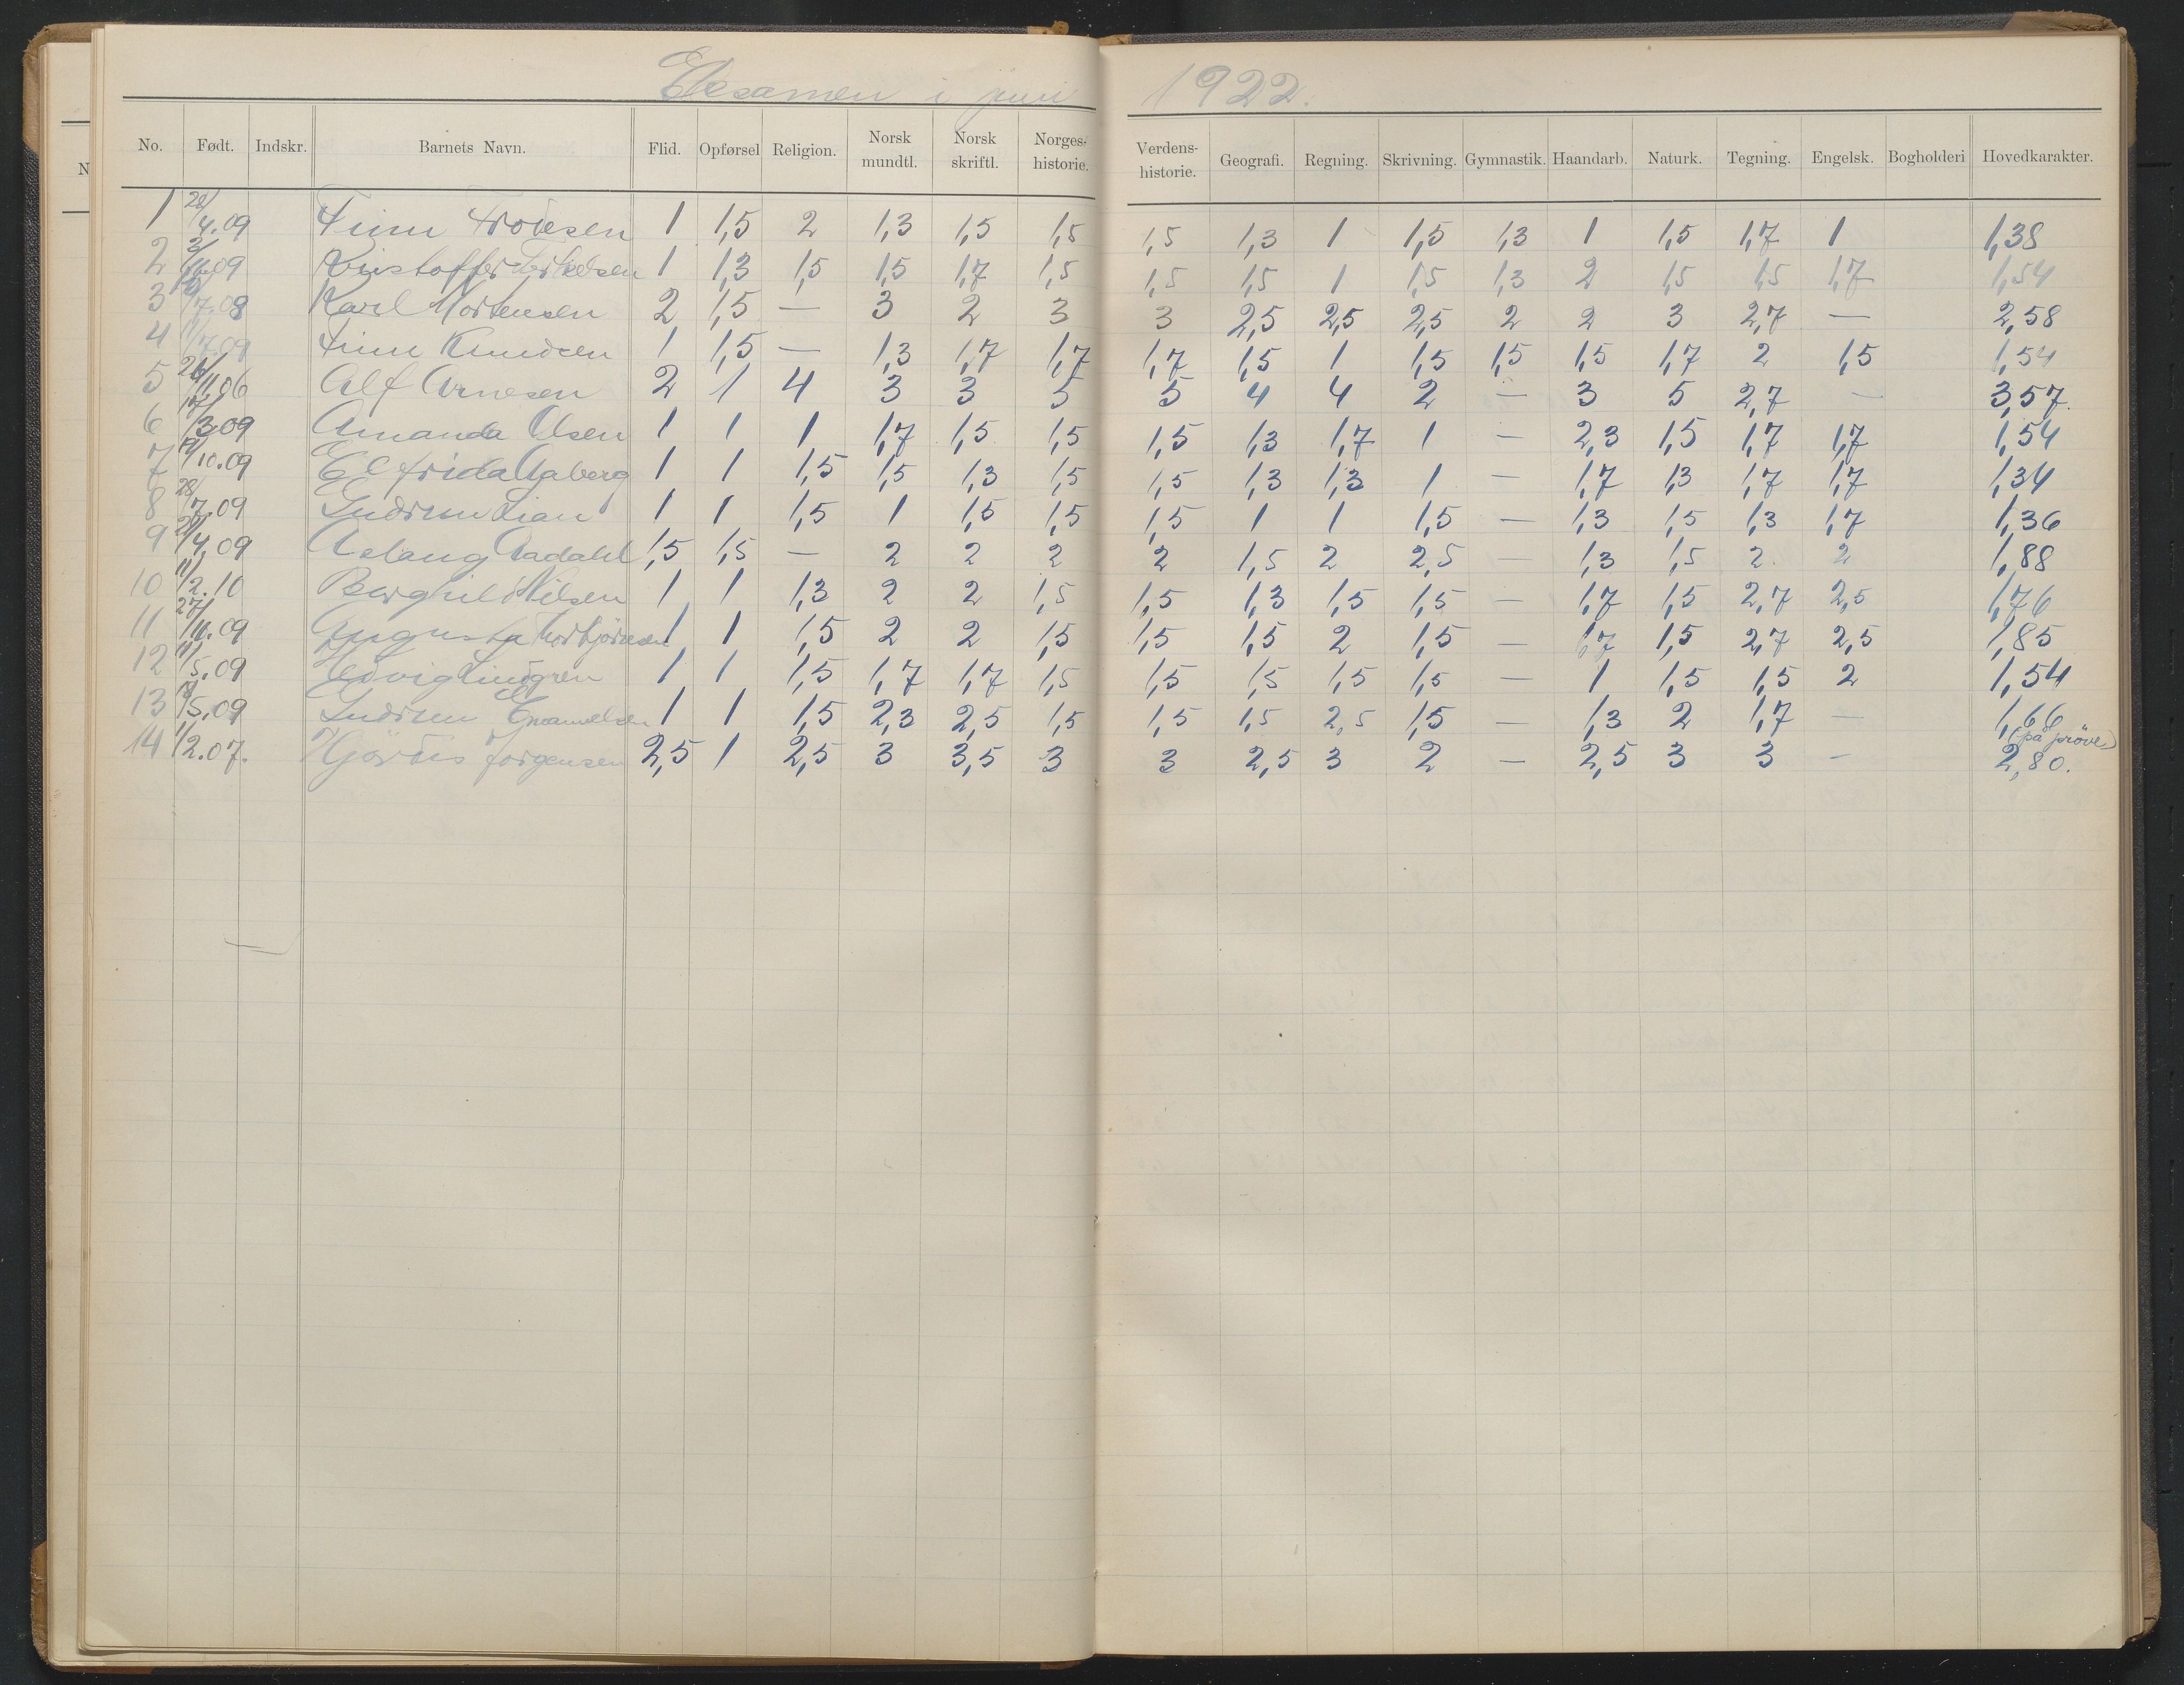 Eksamen i juni 1922.
No. Født. Indskr. Barnets Navn. Flid. Opførsel Religion. Norsk mundtl. Norsk skriftl. Norges-historie. Verdens-historie. Geografi. Regning. Skrivning. Gymnastik. Haandarb. Naturk. Tegning. Engelsk. Bogholderi Hovedkarakter.
1 4.09 Finn 1 1,5 2 1,3 1,5 1,5 1,5 1,3 1 1,5 1,3 1 1,5 1,7 1 1,38
2 Kristoffer Terkelsen 1 1,3 1,5 1,5 1,7 1,5 1,5 1,5 1 1,5 1,3 2 1,5 1,5 1,7 1,54
3 7.08 Karl Mortensen 2 1,5 — 3 2 3 3 2,5 2,5 2,5 2 2 3 2,7 — 2,58
4 7.09 Finn Knudsen 1 1,5 — 1,3 1,7 1,7 1,7 1,5 1 1,5 1,5 1,5 1,7 2 1,5 1,54
5 26/11.06 Alf Arnesen 2 1 4 3 3 5 5 4 4 2 — 3 5 2,7 — 3,57.
6 17/3.09 Amanda Olsen 1 1 1 1,7 1,5 1,5 1,5 1,3 1,7 1 — 2,3 1,5 1,7 1,7 1,54
7 /10.09 Elfrida Aaberg 1 1 1,5 1,5 1,3 1,5 1,5 1,3 1,3 1 — 1,7 1,3 1,7 1,7 1,34
8 28/7.09 Gudrun Lian 1 1 1,5 1 1,5 1,5 1,5 1 1 1,5 — 1,3 1,5 1,3 1,7 1,36
9 /4.09 Aslaug Aadahl 1,5 1,5 — 2 2 2 2 1,5 2 2,5 — 1,3 1,5 2 2 1,88
10 11/2.10 Borghild Nilsen 1 1 1,3 2 2 1,5 1,5 1,3 1,5 1,5 — 1,7 1,5 2,7 2,5 1,76
11 27/11.09 Augusta Torbjörnsen 1 1 1,5 2 2 1,5 1,5 1,5 2 1,5 — 1,7 1,5 2,7 2,5 1,85
12 11/5.09 Hedvig Lindgren 1 1 1,5 1,7 1,7 1,5 1,5 1,5 1,5 1,5 — 1 1,5 1,5 2 1,54
13 /5.09 Gudrun Emanuelsen 1 1 1,5 2,3 2,5 1,5 1,5 1,5 2,5 1,5 — 1,3 2 1,7 — 1,66
(på pröve)
14 1/2.07. Hjördis Jörgensen 2,5 1 2,5 3 3,5 3 3 2,5 3 2 — 2,5 3 3 — 2,80.